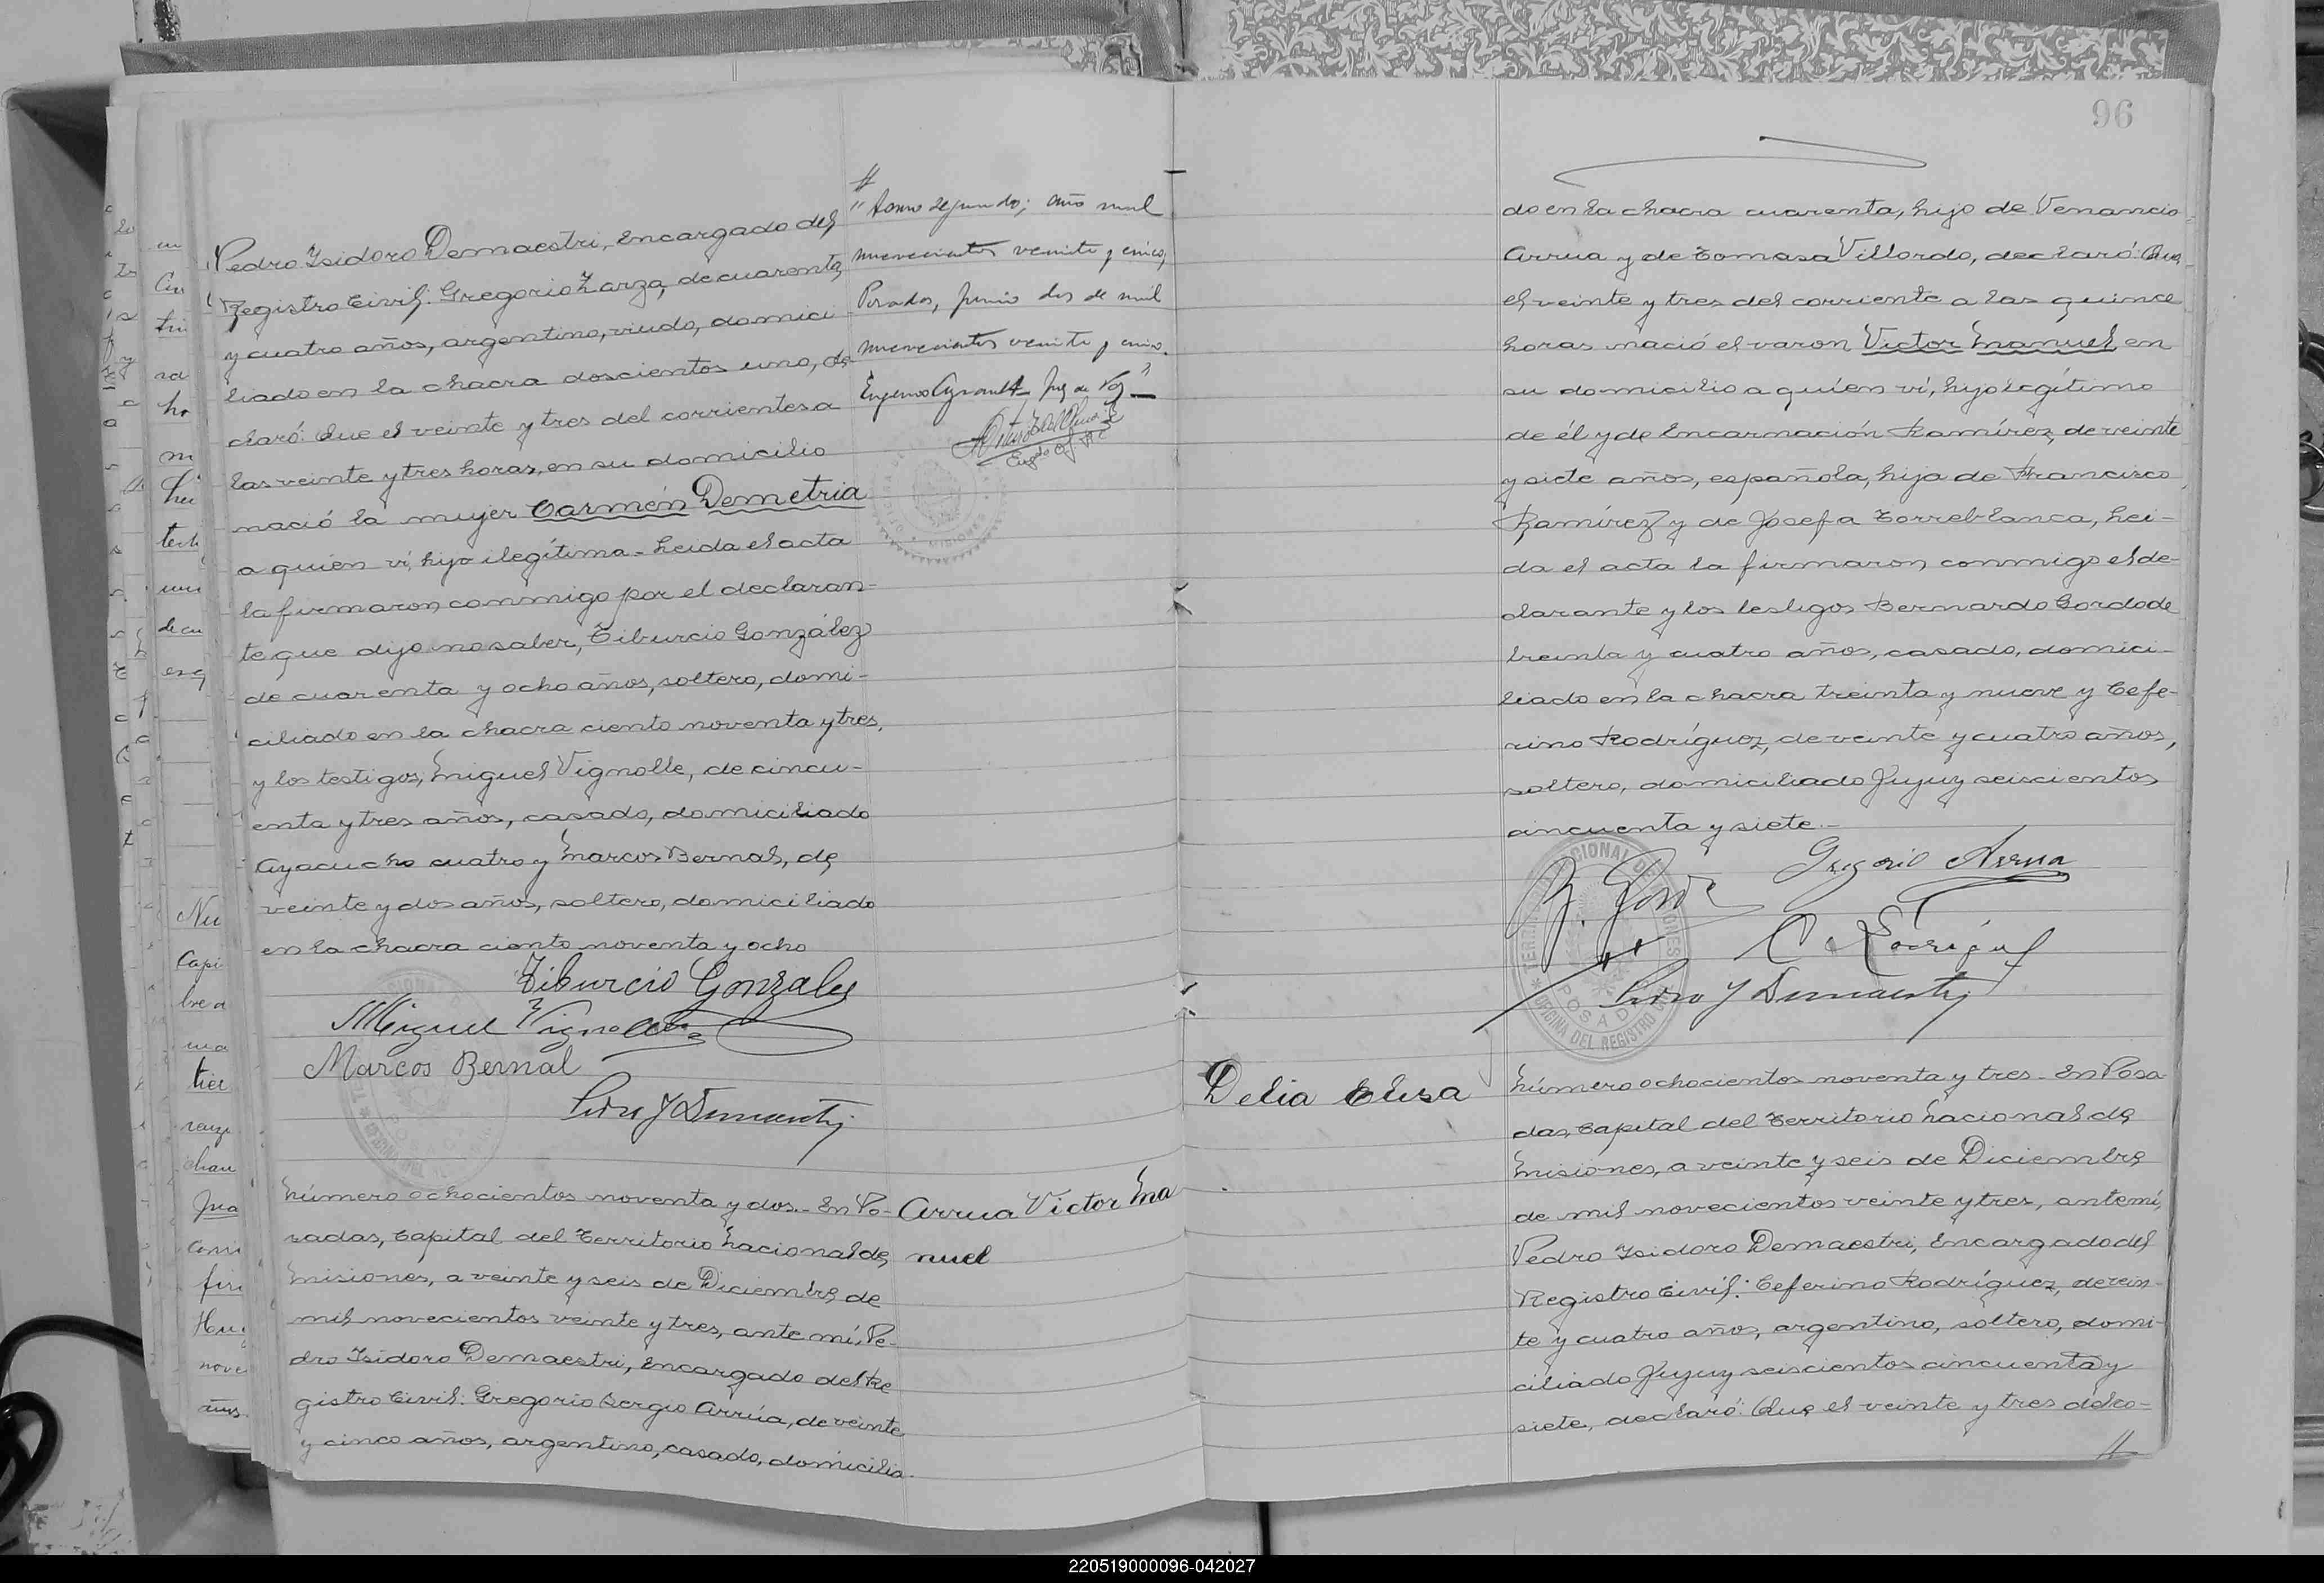 Pedro Isidoro Demaestri, Encargado del
Registro Civil: Gregorio Zarza, de cuarenta
y cuatro años, argentino, viudo, domici
liado en la chacra doscientos uno, de
claró: Que el veinte y tres del corrientes a
las veinte y tres horas, en su domicilio
nació la mujer Carmen Demetria
a quien vi, hija ilegítima. Leida el acta
la firmaron conmigo por el declaran-
te que dijo no saber, Tiburcio González
de cuarenta y ocho años, soltero, domi-
ciliado en la chacra ciento noventa y tres,
y los testigos, Miguel Vignolle, de cincu-
enta y tres años, casado, domiciliado
Ayacucho cuatro y Marcos Bernal, de
veinte y dos años, soltero, domiciliado
en la chacra ciento noventa y ocho
Tiburcio Gonzales
Miguel Vignolles
Marcos Bernal
Número ochocientos noventa y dos.- En Po-
sadas, Capital del Territorio Nacional de
Misiones, a veinte y seis de Diciembre de
mil novecientos veinte y tres, ante mí, Pe-
dro Isidoro Demaestri, Encargado del Re
gistro Civil: Gregorio Sergio Arrúa, de veinte
y cinco años, argentino, casado, domicilia-
"tomo segundo; año mil
novecientos veinte y cinco,
Posadas, Junio dos de mil
novecientos veinte y cinco.
Juez de Paz"
Arrua Victor Ma
nuel
96
do en la chacra cuarenta, hijo de Venancio
Arrua y de Tomasa Villordo, declaró: Que
el veinte y tres del corriente a las quince
horas nació el varon Victor Manuel en
su domicilio a quien vi, hijo legítimo
de él y de Encarnación Ramírez, de veinte
y siete años, española, hija de Francisco
Ramírez y de Josefa Torreblanca, Lei-
da el acta la firmaron conmigo el de-
clarante y los testigos Bernardo Gordo de
treinta y cuatro años, casado, domici-
liado en la chacra treinta y nueve y Cefe-
rino Rodríguez, de veinte y cuatro años,
soltero, domiciliado Jujuy seiscientos
cincuenta y siete.-
Gregorio Arrua
C. Rodríguez
OFICINA DEL REGISTRO CIVIL
POSADAS
Delia Elisa
Número ochocientos noventa y tres.- En Posa
das, Capital del Territorio Nacional de
Misiones, a veinte y seis de Diciembre
de mil novecientos veinte y tres, ante mí,
Pedro Isidoro Demaestri, Encargado del
Registro Civil: Ceferino Rodríguez, de vein-
te y cuatro años, argentino, soltero, domi-
ciliado Jujuy seiscientos cincuenta y
siete, declaró: Que el veinte y tres del co-
220519000096-042027